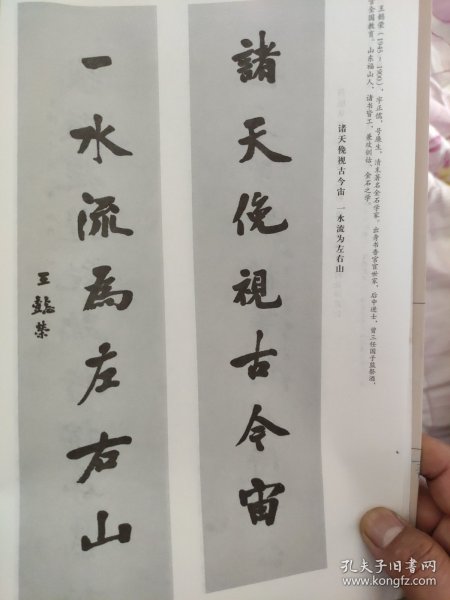 王懿荣（1945～1900），字正儒，号廉生，清末著名金石学家，出身书香官宦世家，后中进士，曾三任国子监祭酒，
全国教育。山东福山人，诸书皆工，兼攻训诂、金石之学。
诸天俛视古今宙 一水流为左右山
諸天俛視古今宙
一水流為左右山
王懿榮
孔夫子旧书网
www.kongfz.com